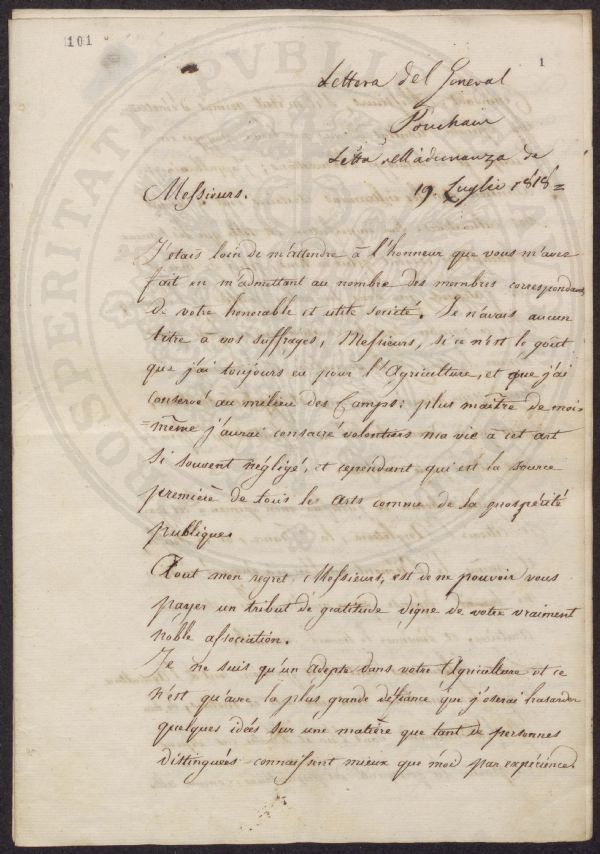 101
1
Lettera del General
Pouchain
Letta nell'adunanza de
19. Luglio 1818=
Messieurs.
J'etais loin de m'attendre à l'honneur que vous m'avez
fait en m'admettant au nombre des membres correspondans
de votre honorable et utile societé. Je n'avais aucun
titre à vos suffrages, Messieurs, si ce n'est le goût
que j'ai toujours eu pour l'Agriculture, et que j'ai
conservé au milieu des Camps: plus maître de moi-
=même j'aurai consacré volontiers ma vie à cet art
si souvent négligé, et cependant qui est la source
première de tous les arts comme de la prospérité
publique.
Tout mon regret, Messieurs, est de ne pouvoir vous
payer un tribut de gratitude digne de votre vraiment
noble association.
Je ne suis qu'un adepte dans votre Agriculture et ce
n'est qu'avec la plus grande défiance que j'oserai hasarder
quelques idées sur une matière que tant de personnes
distinguées connaissent mieux que moi par expérience.